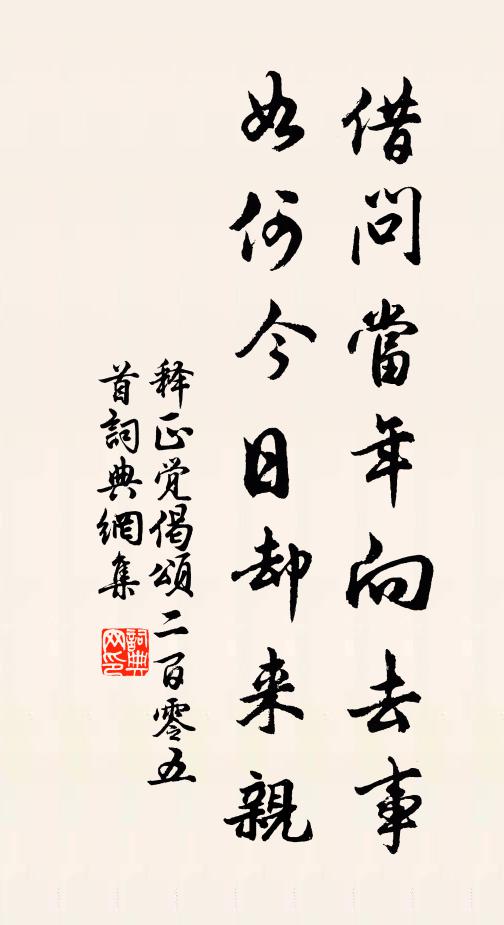 借問當年向去事
如何今日却来親
释正觉偈頌二百零五
首詞典網集
詞典
网印